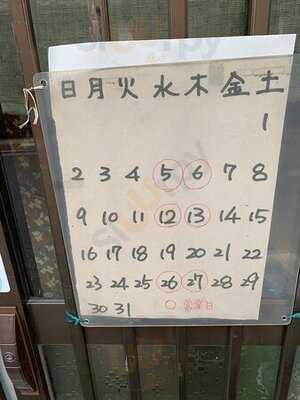 日 月 火 水 木 金 土
1
2 3 4 5 6 7 8
9 10 11 12 13 14 15
16 17 18 19 20 21 22
23 24 25 26 27 28 29
30 31 ○ 営業日